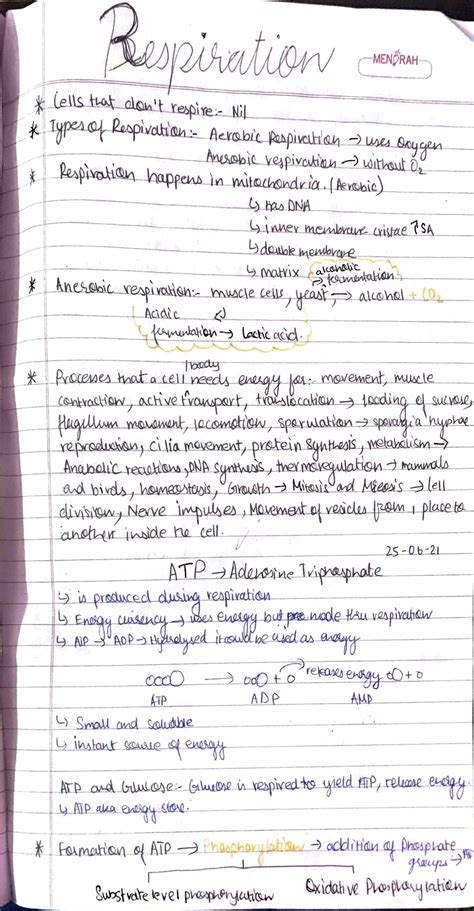 Respiration
MENORAH
* Cells that don't respire:- Nil
* Types of Respiration:- Aerobic Respiration → uses Oxygen
Anerobic respiration → without O2
* Respiration happens in mitochondria. (Aerobic)
↳ Has DNA
↳ inner membrane cristae ↑SA
↳ double membrane
↳ matrix
alcoholic
fermentation
* Anerobic respiration:- muscle cells, yeast, → alcohol + CO2
Acidic
fermentation → Lactic acid.
/body
* Processes that a cell needs energy for:- movement, muscle
contraction, active transport, translocation → loading of sucrose,
flagillum movement, locomotion, sporulation → sporagia hyphae
reproduction, cilia movement, protein synthesis, metabolism →
Anabolic reactions, DNA synthesis, thermoregulation → mammals
and birds, homeostasis, Growth → Mitosis and Meiosis → cell
division, Nerve impulses, Movement of vesicles from 1 place to
another inside the cell.
25-06-21
ATP → Adenosine Triphosphate
↳ is produced during respiration
↳ Energy currency → uses energy but made thru respiration
↳ ATP → ADP → Hydrolysed it could be used as energy
oooO → ooO + o releases energy oO + o
ATP ADP AMP
↳ Small and soluble
↳ instant source of energy
ATP and Glucose:- Glucose is respired to yield ATP, release energy.
↳ ATP aka energy store.
* Formation of ATP → Phosphorylation → addition of Phosphate
groups →
Substrate level phosphorylation Oxidative Phosphorylation